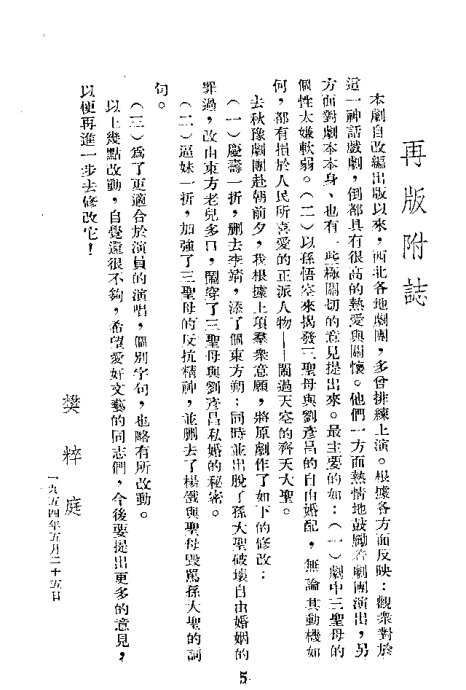 再版附誌
本劇自改編出版以來，西北各地劇團，多曾排練上演。根據各方面反映：觀衆對於
這一神話戲劇，倒都具有很高的熱愛與關懷。他們一方面熱情地鼓勵着劇團演出，另
方面對劇本本身、也有一些極關切的意見提出來。最主要的如：（一）劇中三聖母的
個性太嫌軟弱。（二）以孫悟空來揭發三聖母與劉彥昌的自由婚配，無論其動機如
何，都有損於人民所喜愛的正派人物——鬧過天宮的齊天大聖。
去秋豫劇團赴朝前夕，我根據上項羣衆意願，將原劇作了如下的修改：
（一）慶壽一折，删去李靖，添了個東方朔；同時並出脫了孫大聖破壞自由婚姻的
罪過，改由東方老兒多口，鬧穿了三聖母與劉彥昌私婚的秘密。
（二）逼妹一折，加強了三聖母的反抗精神，並删去了楊戩與聖母毀罵孫大聖的詞
句。
（三）爲了更適合於演員的演唱，個別字句，也略有所改動。
以上幾點改動，自覺還很不夠，希望愛好文藝的同志們，今後要提出更多的意見，
以便再進一步去修改它！
樊粹庭
一九五四年五月二十五日
5